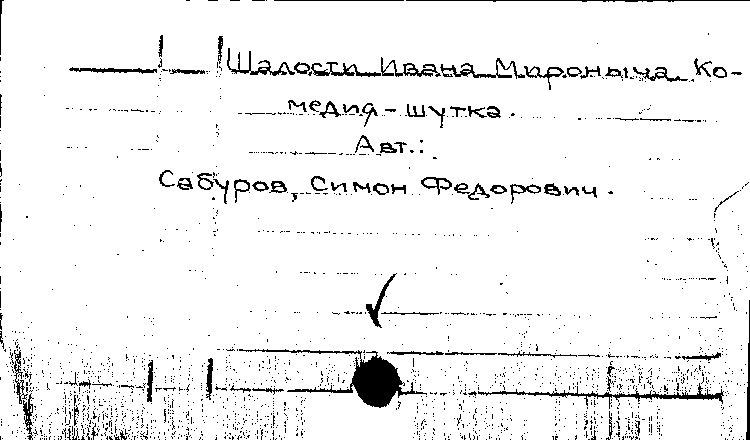 Шалости Ивана Мироныча. Ко-
медия-шутка.
Авт.:
Сабуров, Симон Федорович.